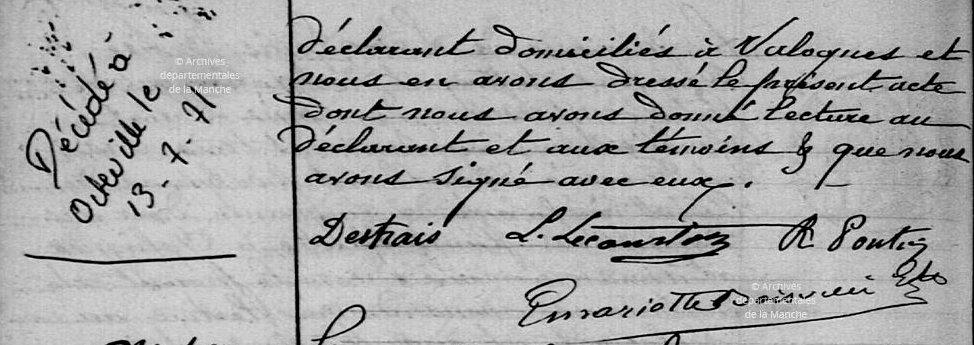 Décédé à
Octeville le
13-7-71
déclarant domiciliés à Valognes et
nous en avons dressé le présent acte
dont nous avons donné lecture au
déclarant et aux témoins & que nous
avons signé avec eux.
Destrais L. Lecourtois R Pontis
© Archives
départementales
de la Manche
© Archives
départementales
de la Manche